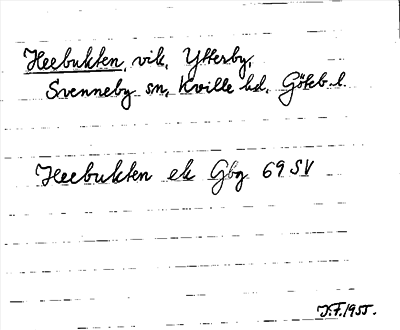 Heebukten, vik, Ytterby,
Svenneby sn, Kville hd, Göteb. l.
Heebukten ek Gbg 69 SV
J.F. 1955.